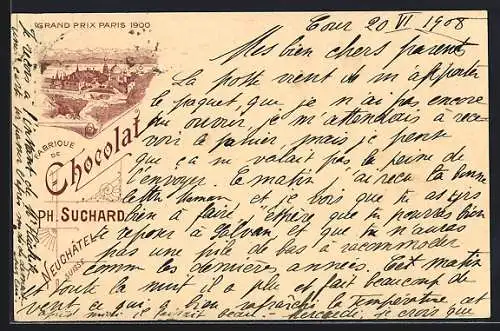 GRAND PRIX PARIS 1900
FABRIQUE
DE
Chocolat
PH. SUCHARD
NEUCHÂTEL
SUISSE
Tour 20 VI 1908
Mes bien chers parents
La poste vient de m'apporter
le paquet, que je n'ai pas encore
pu ouvrir, je m'attendois à rece-
voir le panier, mais je pense
que ça ne valait pas la peine de
l'envoyer. Ce matin j'ai reçu ta bonne
lettre Maman, et je vois que tu as
bien à faire, j'espère que tu pourras bien
te reposer à et que tu n'auras
pas une pile de bas à raccommoder
comme les dernières années. Cet matin
et toute la nuit il a plu et fait beaucoup de
vent ce qui a bien rafraîchi la température, cet
après midi il faisait beau. Mercredi, je crois que